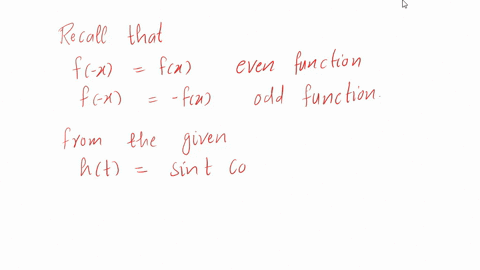 Recall that
f(-x) = f(x) even function
f(-x) = -f(x) odd function.
from the given
h(t) = sint co